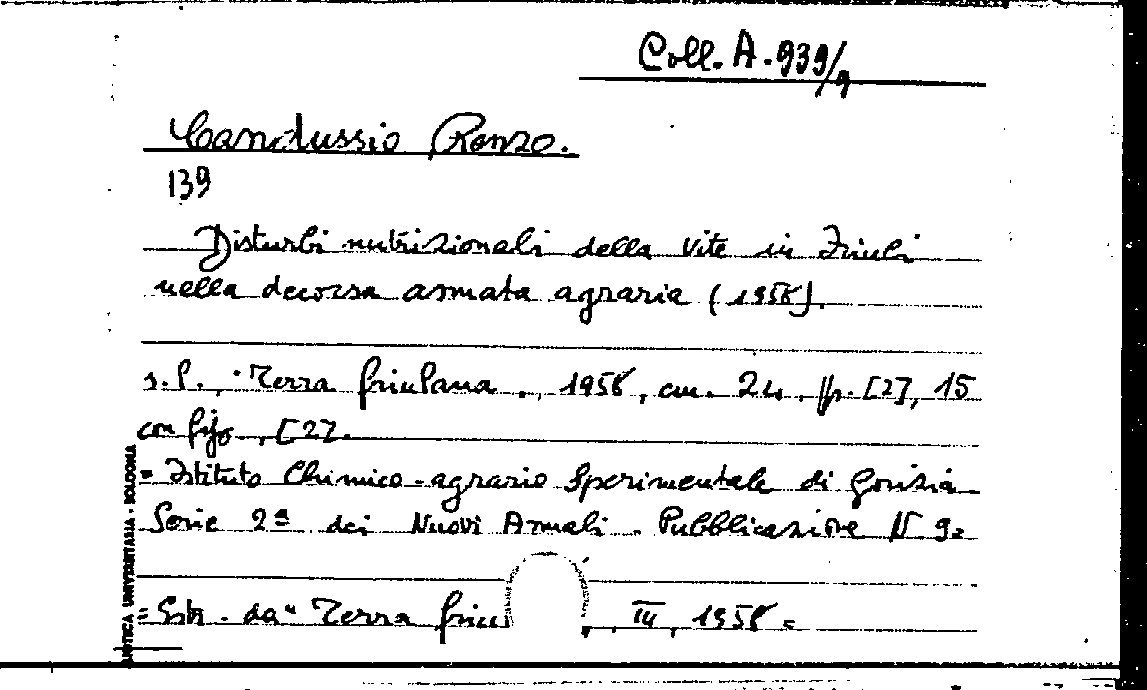 Coll. A. 939/9
Candussio Renzo.
139
Disturbi nutrizionali della vite in Friuli
nella decorsa annata agraria (1958).
s.l., "Terra friulana", 1958, cm. 24, pp. [2], 15
con figg., [2].
= Istituto Chimico-agrario Sperimentale di Gorizia
Serie 2ª dei Nuovi Annali. Pubblicazione N 9=
= Estr. da "Terra friu , III, 1958 =
ANTICA UNIVERSITARIA - BOLOGNA